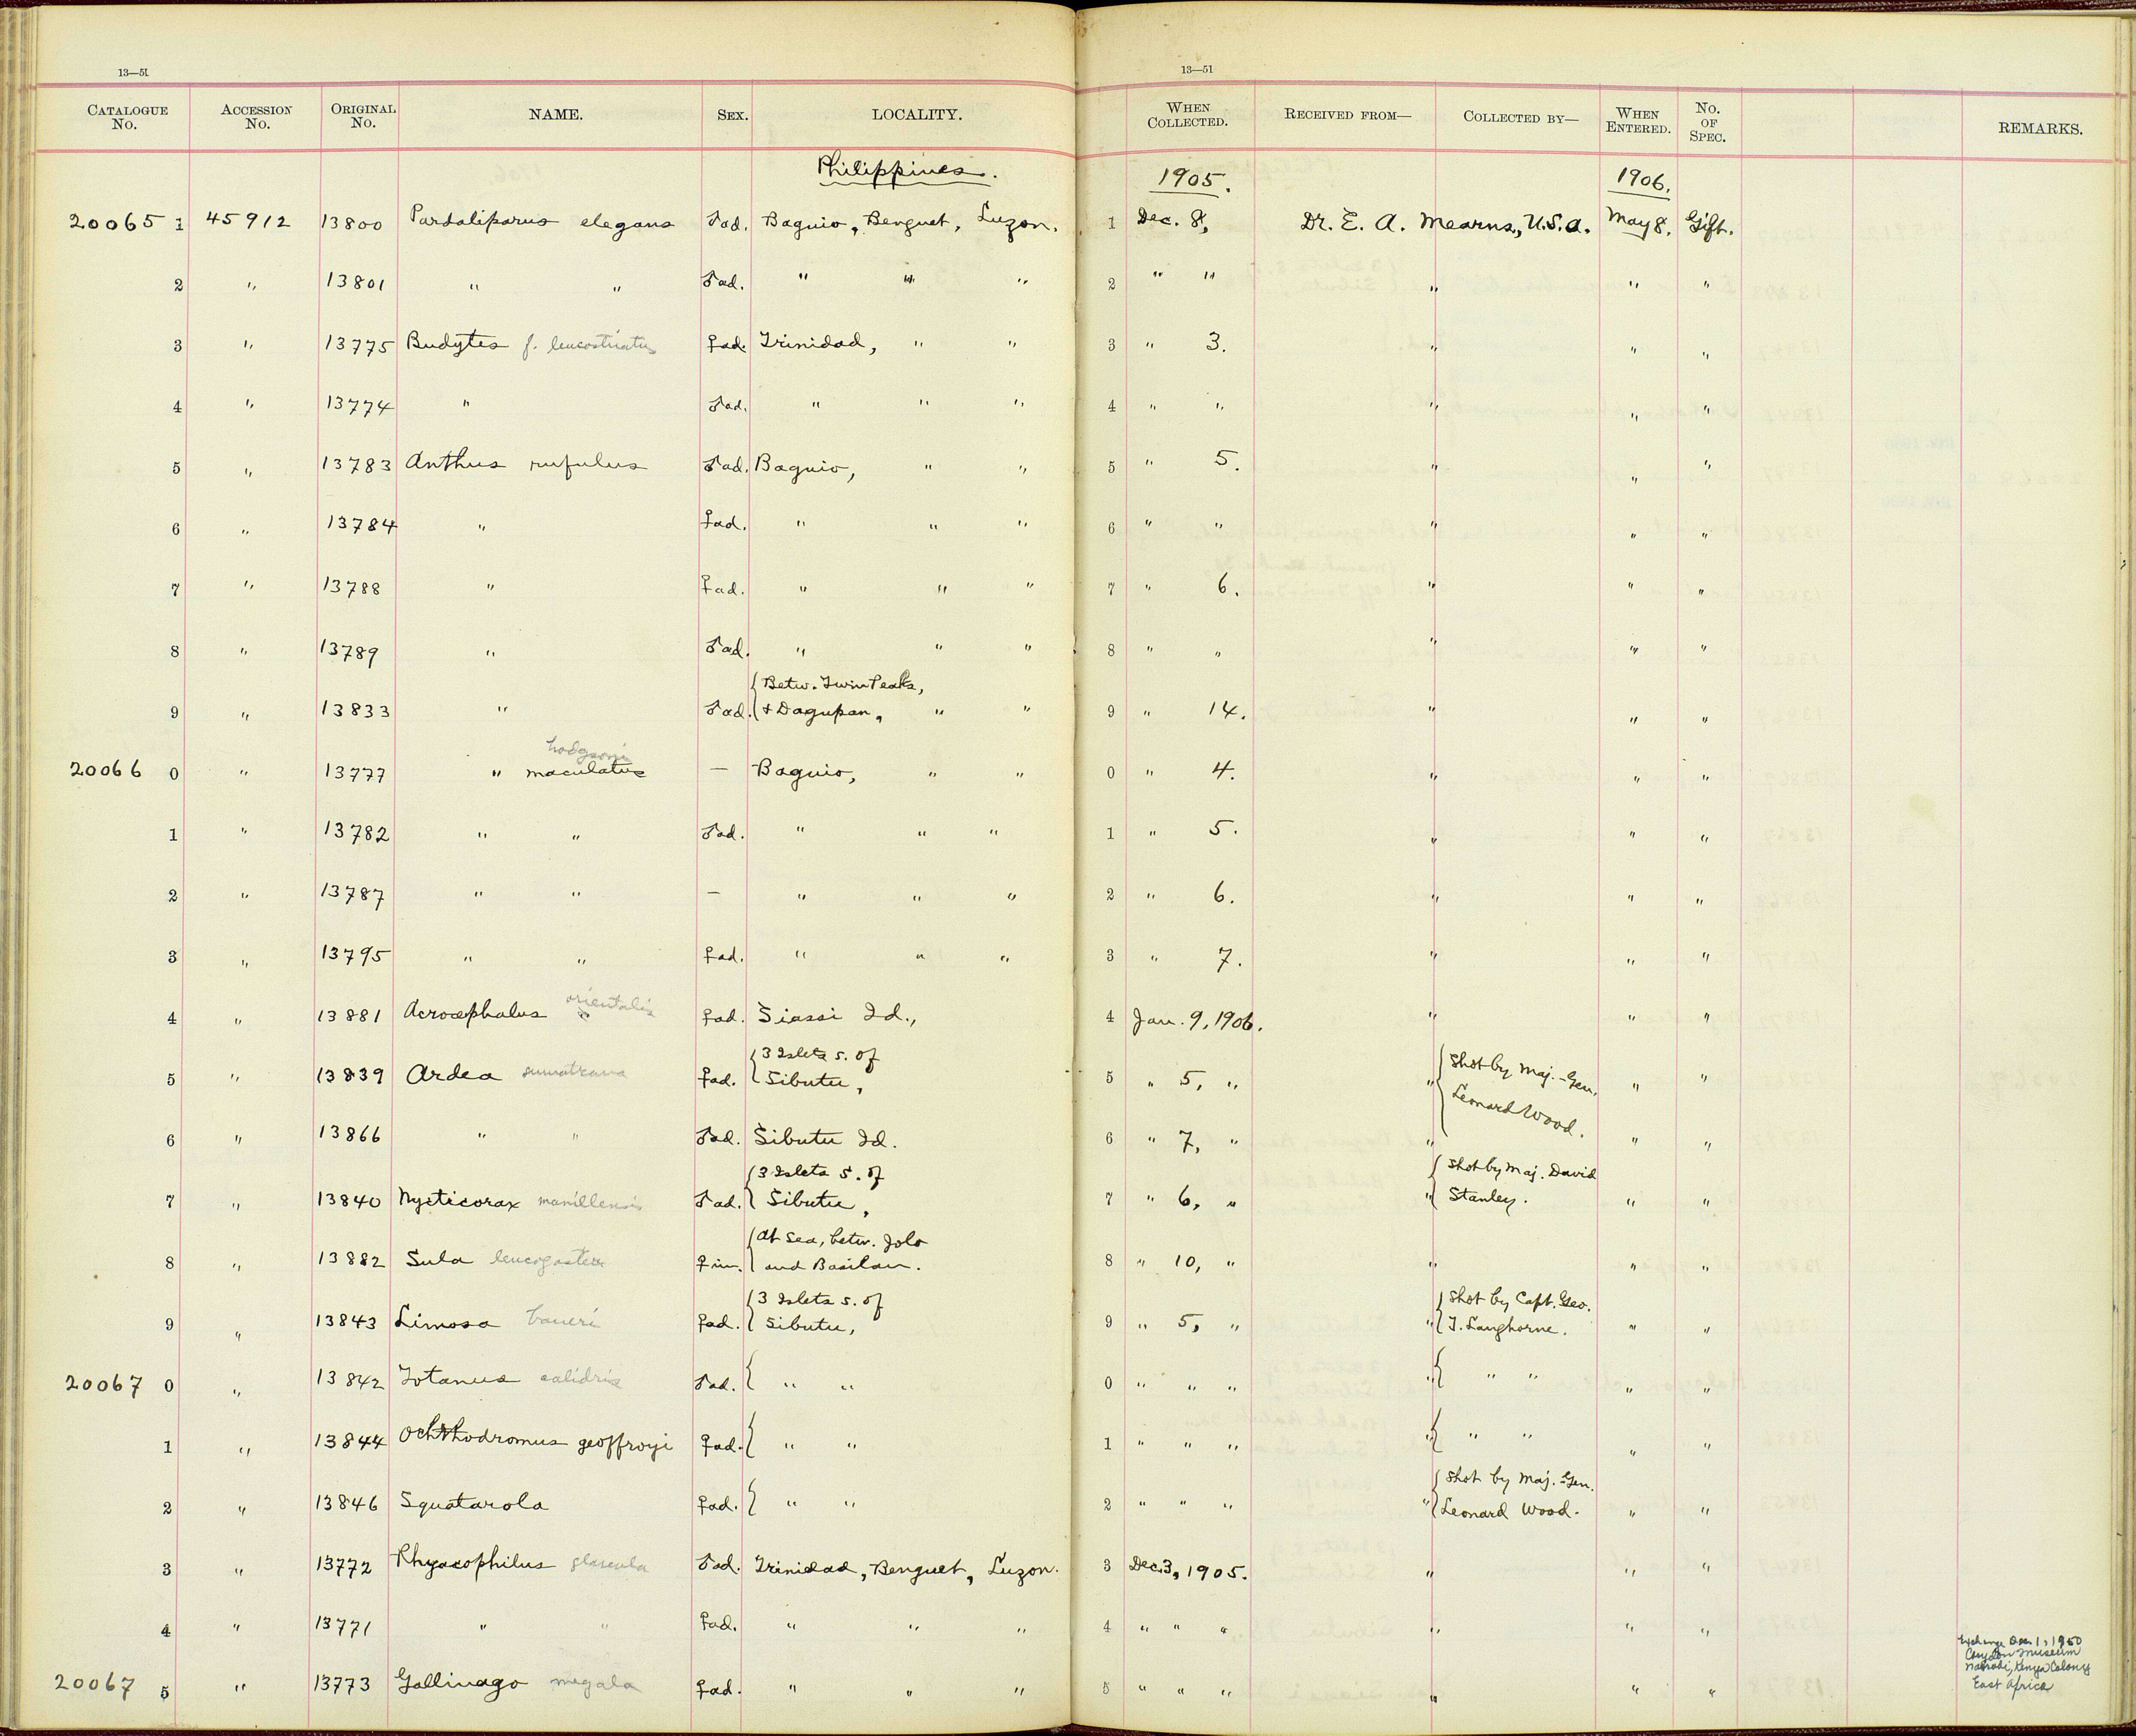 13—51
13—51
CATALOGUE No. ACCESSION No. ORIGINAL No. NAME. SEX. LOCALITY. WHEN COLLECTED. RECEIVED FROM— COLLECTED BY— WHEN ENTERED. No. OF SPEC. REMARKS.
Philippines. 1905. 1906.
20065 1 45912 13800 Pardaliparus elegans ♂ad. Baguio, Benguet, Luzon. 1 Dec. 8, Dr. E. A. Mearns, U.S.A. May 8. Gift.
2 " 13801 " " ♂ad. " " " 2 " " " " "
3 " 13775 Budytes f. leucostriatus ♀ad. Trinidad, " " 3 " 3. " " "
4 " 13774 " ♂ad. " " " 4 " " " " "
5 " 13783 Anthus rufulus ♂ad. Baguio, " " 5 " 5. " " "
6 " 13784 " ♀ad. " " " 6 " " " " "
7 " 13788 " ♀ad. " " " 7 " 6. " " "
8 " 13789 " ♂ad. " " " 8 " " " " "
{Betw. Twin Peaks,
9 " 13833 " ♂ad. & Dagupan, " " 9 " 14. " " "
hodgsoni
20066 0 " 13777 " maculatus — Baguio, " " 0 " 4. " " "
1 " 13782 " " ♂ad. " " " 1 " 5. " " "
2 " 13787 " " — " " " 2 " 6. " " "
3 " 13795 " " ♀ad. " " " 3 " 7. " " "
4 " 13881 Acrocephalus orientalis ♀ad. Siassi Id., 4 Jan. 9, 1906. " " "
{3 Islets S. of {Shot by Maj.-Gen.
5 " 13839 Ardea sumatrana ♀ad. Sibutu, 5 " 5, " " Leonard Wood. " "
6 " 13866 " " ♂ad. Sibutu Id. 6 " 7, " " " "
{3 Islets S. of {Shot by Maj. David
7 " 13840 Nycticorax manillensis ♂ad. Sibutu, 7 " 6, " " Stanley. " "
{At Sea, betw. Jolo
8 " 13882 Sula leucogaster ♀im. and Basilan. 8 " 10, " " " "
{3 Islets S. of {Shot by Capt. Geo.
9 " 13843 Limosa baueri ♀ad. Sibutu, 9 " 5, " " T. Langhorne. " "
20067 0 " 13842 Totanus calidris ♂ad. { " " 0 " " " " { " " " "
1 " 13844 Ochthodromus geoffroyi ♀ad. { " " 1 " " " " { " " " "
{Shot by Maj.-Gen.
2 " 13846 Squatarola ♀ad. { " " 2 " " " " Leonard Wood. " "
3 " 13772 Rhyacophilus glareola ♂ad. Trinidad, Benguet, Luzon. 3 Dec. 3, 1905. " " "
4 " 13771 " " ♀ad. " " " 4 " " " " " "
Exchange Dec 1, 1950
Coryndon Museum
Nairobi, Kenya Colony
East Africa
20067 5 " 13773 Gallinago megala ♀ad. " " " 5 " " " " " "